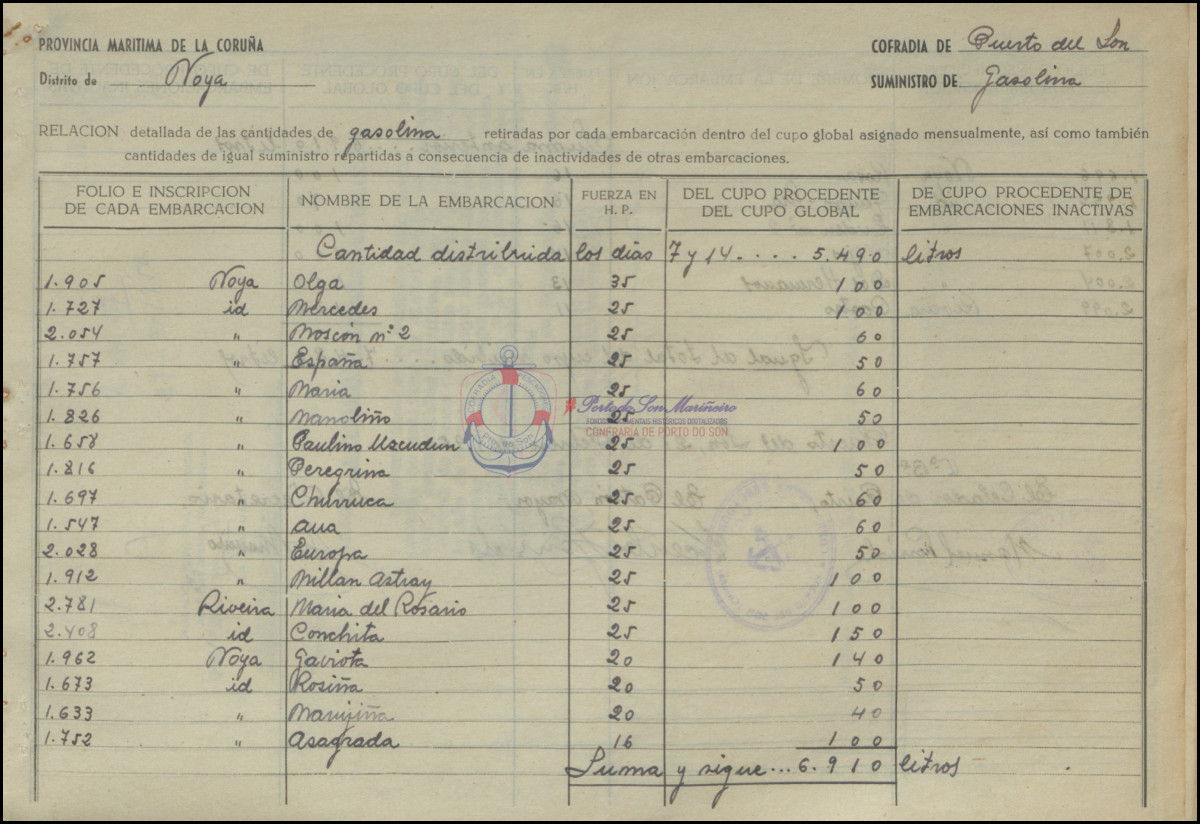 PROVINCIA MARITIMA DE LA CORUÑA
Distrito de Noya
COFRADIA DE Puerto del Son
SUMINISTRO DE Gasolina
RELACION detallada de las cantidades de gasolina retiradas por cada embarcación dentro del cupo global asignado mensualmente, así como también
cantidades de igual suministro repartidas a consecuencia de inactividades de otras embarcaciones.
FOLIO E INSCRIPCION DE CADA EMBARCACION NOMBRE DE LA EMBARCACION FUERZA EN H. P. DEL CUPO PROCEDENTE DEL CUPO GLOBAL DE CUPO PROCEDENTE DE EMBARCACIONES INACTIVAS
Cantidad distribuida los días 7 y 14 .... 5.490 litros
1.905 Noya Olga 35 100
1.727 id Mercedes 25 100
2.054 " Moscón nº 2 25 60
1.757 " España 25 50
1.756 " Maria 25 60
1.826 " Manoliño 25 50
1.658 " Paulino Uzcudun 25 100
1.816 " Peregrina 25 50
1.697 " Churruca 25 60
1.547 " Ana 25 60
2.028 " Europa 25 50
1.912 " Millan Astray 25 100
2.781 Riveira Maria del Rosario 25 100
2.408 id Conchita 25 150
1.962 Noya Gaviota 20 140
1.673 id Rosiña 20 50
1.633 " Marujiña 20 40
1.752 " Asagrada 16 100
Suma y sigue... 6.910 litros
#Porto do Son Mariñeiro
FONDOS DOCUMENTAIS HISTÓRICOS DIXITALIZADOS
CONFRARÍA DE PORTO DO SON